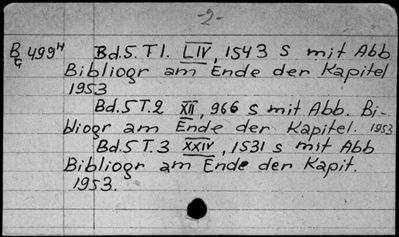 -2-
B/G 499H Bd.5.T1. LIV, 1543 S mit Abb
Bibliogr am Ende der Kapitel
1953
Bd.5T.2 XII, 966 S mit Abb. Bi-
bliogr am Ende der Kapitel. 1953
Bd.5T.3 XXIV, 1531 S mit Abb
Bibliogr am Ende der Kapit.
1953.